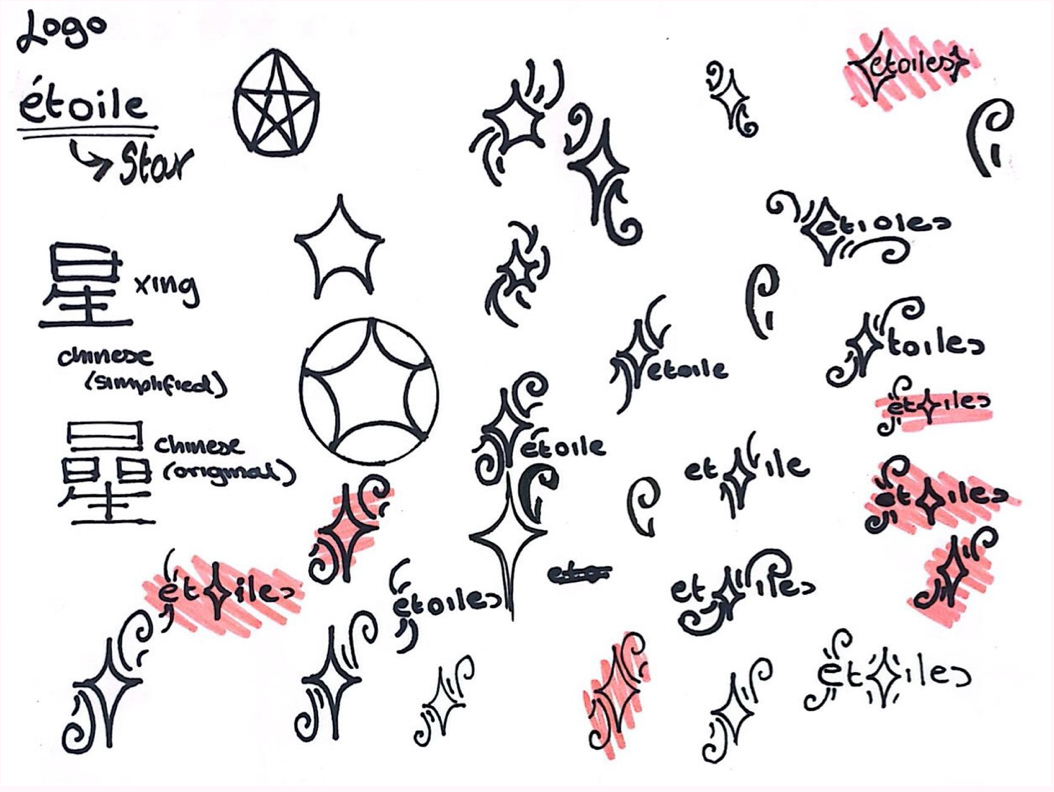 Logo
étoile
Star
星 xing
chinese
(simplified)
曐 chinese
(original)
étoiles
etioles
étoile
toiles
ét iles
étoile
et ile
ét iles
ét iles
étoiles
et iles
ét iles